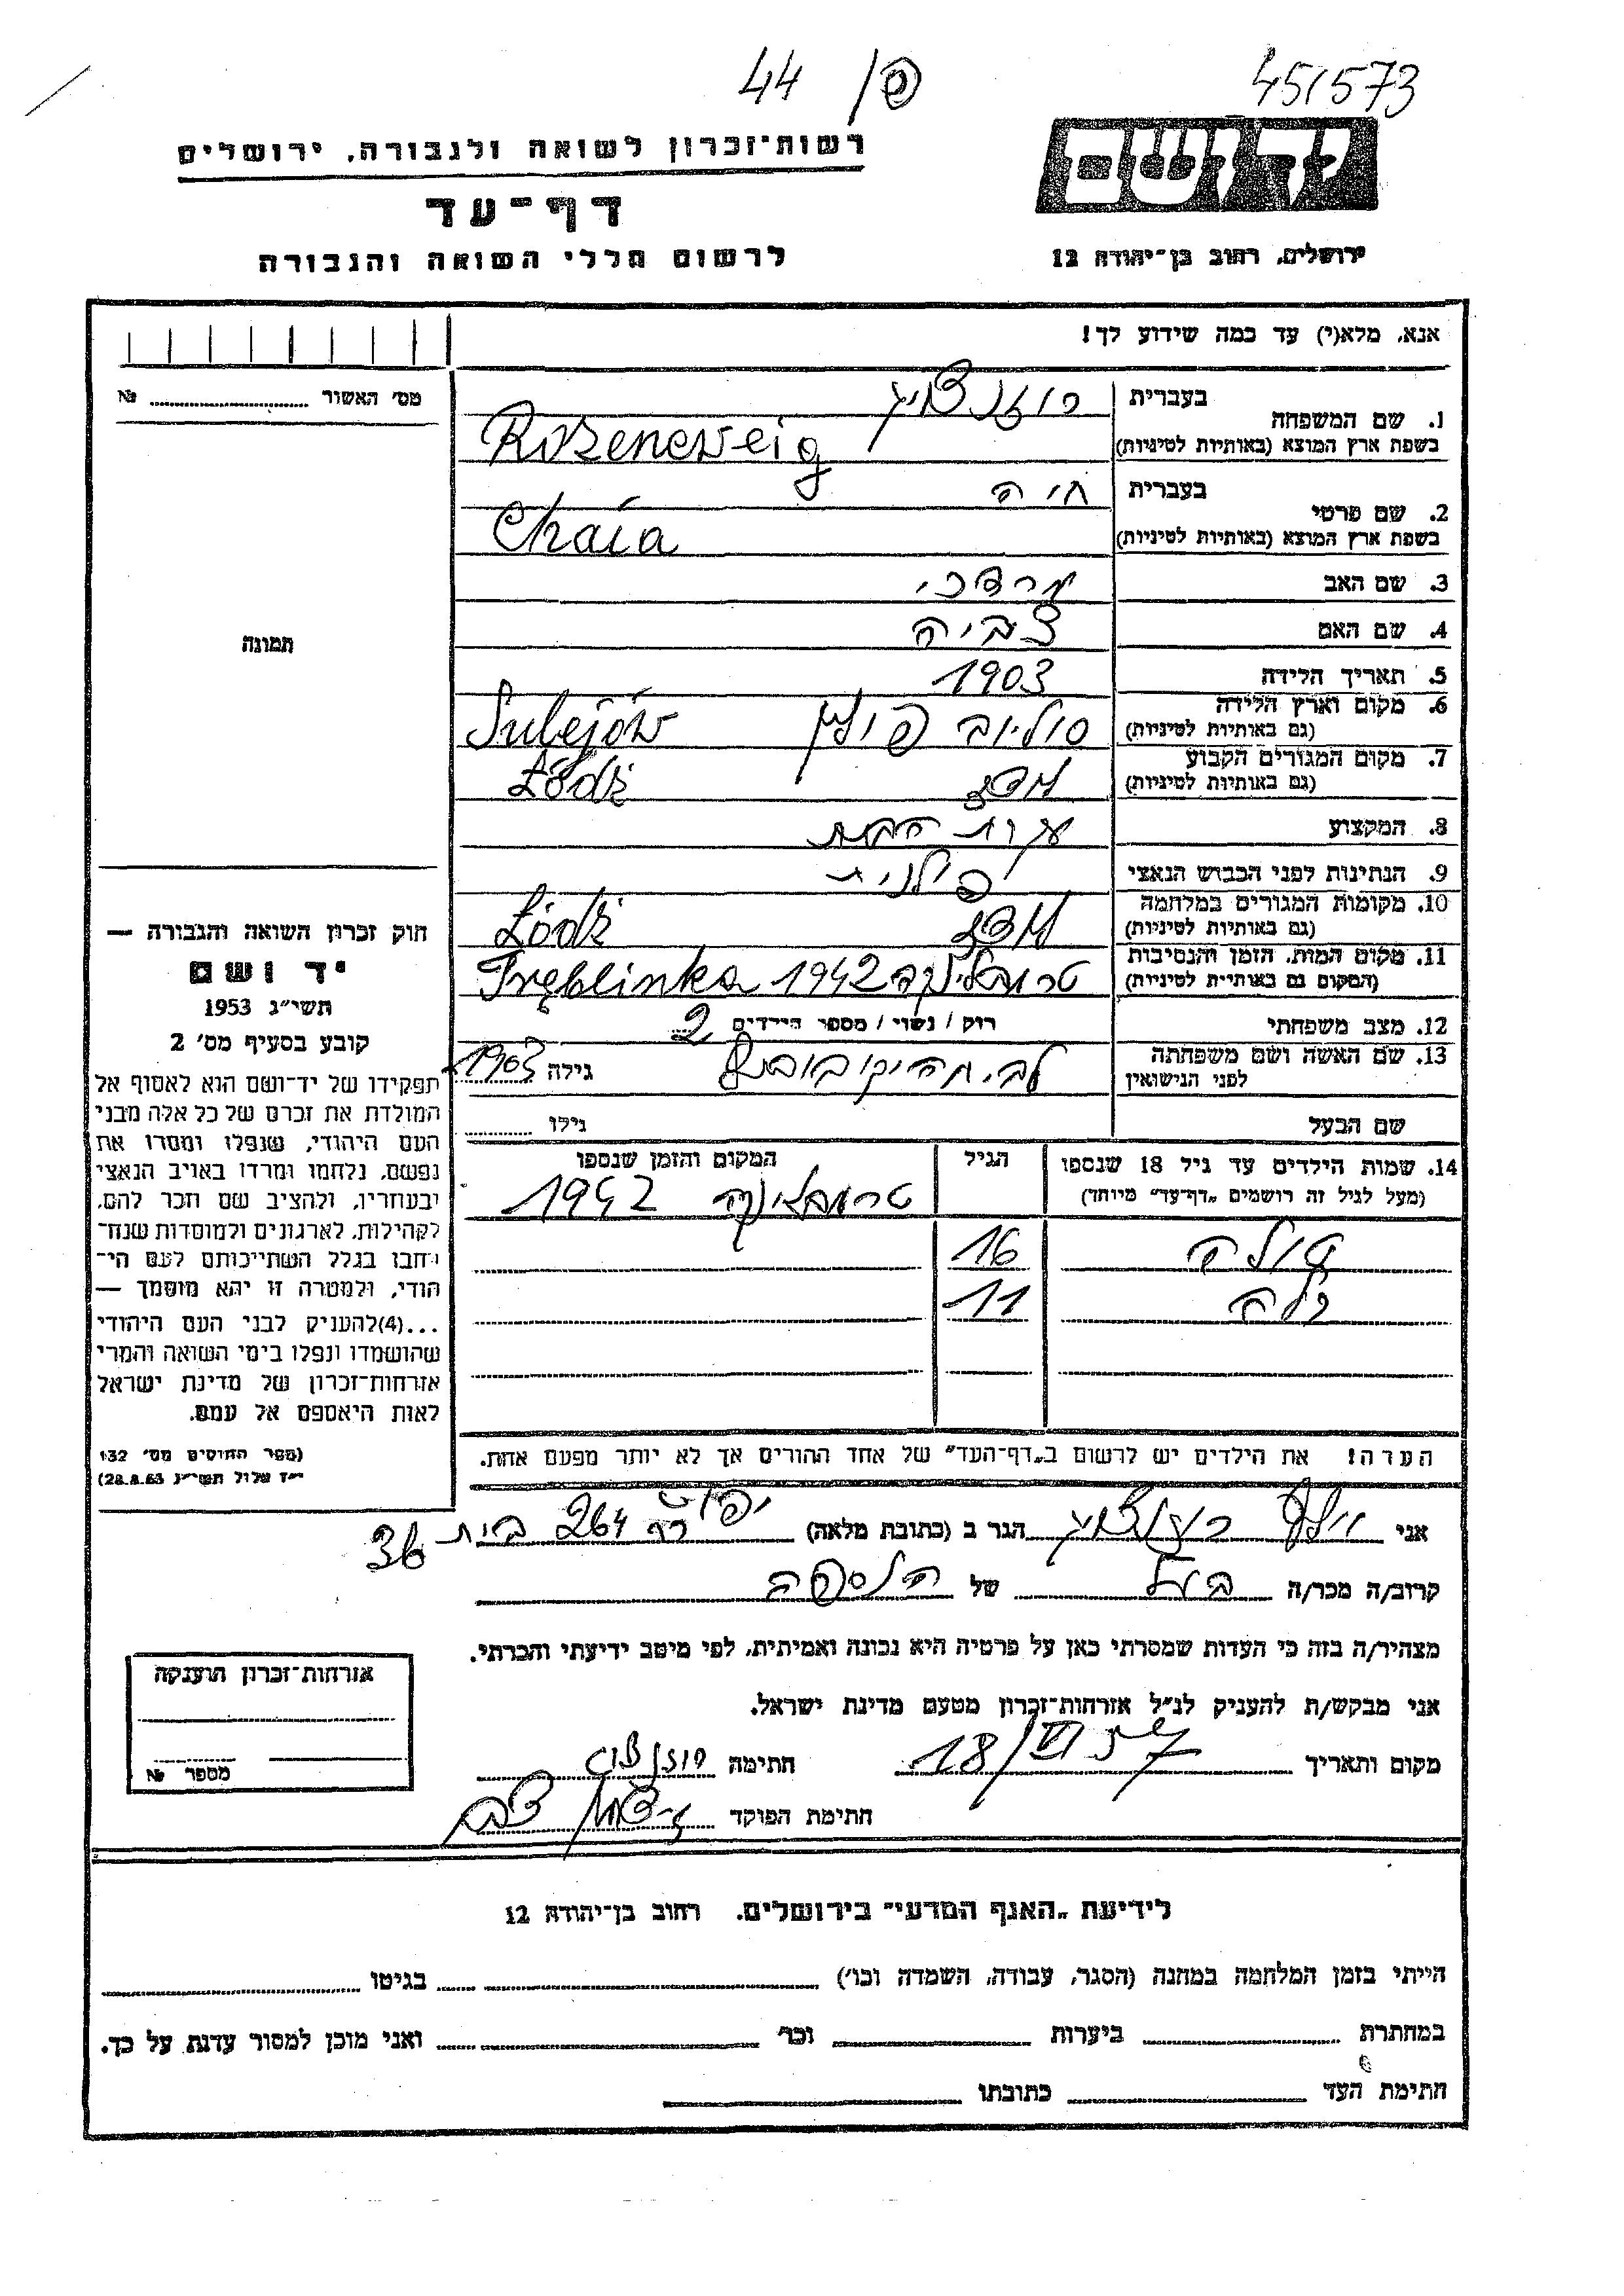 44 פ/ 45/573
יד ושם
רשות־זכרון לשואה ולגבורה, ירושלים
דף־עד
לרשום חללי השואה והגבורה
ירושלים, רחוב בן־יהודה 12
אנא, מלא(י) עד כמה שידוע לך!
מס׳ האשור № 
1. שם המשפחה
בעברית רוזנצוויג
בשפת ארץ המוצא (באותיות לטיניות) Rozencweig
2. שם פרטי
בעברית חיה
בשפת ארץ המוצא (באותיות לטיניות) Chaia
3. שם האב מרדכי
4. שם האם צביה
5. תאריך הלידה 1903
6. מקום וארץ הלידה
(גם באותיות לטיניות) סוליוב פולין Sulejów
7. מקום המגורים הקבוע
(גם באותיות לטיניות) לודז Łódź
8. המקצוע עקרת הבית
9. הנתינות לפני הכבוש הנאצי פולנית
10. מקומות המגורים במלחמה
(גם באותיות לטיניות) לודז Łódź
11. מקום המות, הזמן והנסיבות
(המקום גם באותיות לטיניות) טרובלינקה 1942 Tręblinka
12. מצב משפחתי רוק / נשוי / מספר הילדים 2
13. שם האשה ושם משפחתה
לפני הנישואין גילה 1903
שם הבעל גילו
14. שמות הילדים עד גיל 18 שנספו הגיל המקום והזמן שנספו
(מעל לגיל זה רושמים „דף־עד״ מיוחד) טרובלינקה 1942
16
11
הערה! את הילדים יש לרשום ב„דף־העד״ של אחד ההורים אך לא יותר מפעם אחת.
תמונה
חוק זכרון השואה והגבורה —
יד ושם
תשי״ג 1953
קובע בסעיף מס׳ 2
תפקידו של יד־ושם הוא לאסוף אל
המולדת את זכרם של כל אלה מבני
העם היהודי, שנפלו ומסרו את
נפשם, נלחמו ומרדו באויב הנאצי
ובעוזריו, ולהציב שם וזכר להם,
לקהילות, לארגונים ולמוסדות שנח־
רחבו בגלל השתייכותם לעם הי־
הודי, ולמטרה זו יהא מוסמך —
...(4)להעניק לבני העם היהודי
שהושמדו ונפלו בימי השואה והמרי
אזרחות־זכרון של מדינת ישראל
לאות היאספם אל עמם.
(ספר החוקים מס׳ 132
י״ז אלול תשי״ג 28.8.53)
אני רוזנצוויג הגר ב (כתובת מלאה) 264 בית 36
קרוב/ה מכר/ה בעל של
מצהיר/ה בזה כי העדות שמסרתי כאן על פרטיה היא נכונה ואמיתית, לפי מיטב ידיעתי והכרתי.
אני מבקש/ת להעניק לנ״ל אזרחות־זכרון מטעם מדינת ישראל.
מקום ותאריך 18/VI חתימה רוזנצוויג
חתימת הפוקד
אזרחות־זכרון הוענקה
מספר №
לידיעת „האגף המדעי״ בירושלים, רחוב בן־יהודה 12
הייתי בזמן המלחמה במחנה (הסגר, עבודה, השמדה וכו׳) בגיטו
במחתרת ביערות וכו׳ ואני מוכן למסור עדות על כך.
חתימת העד כתובתו